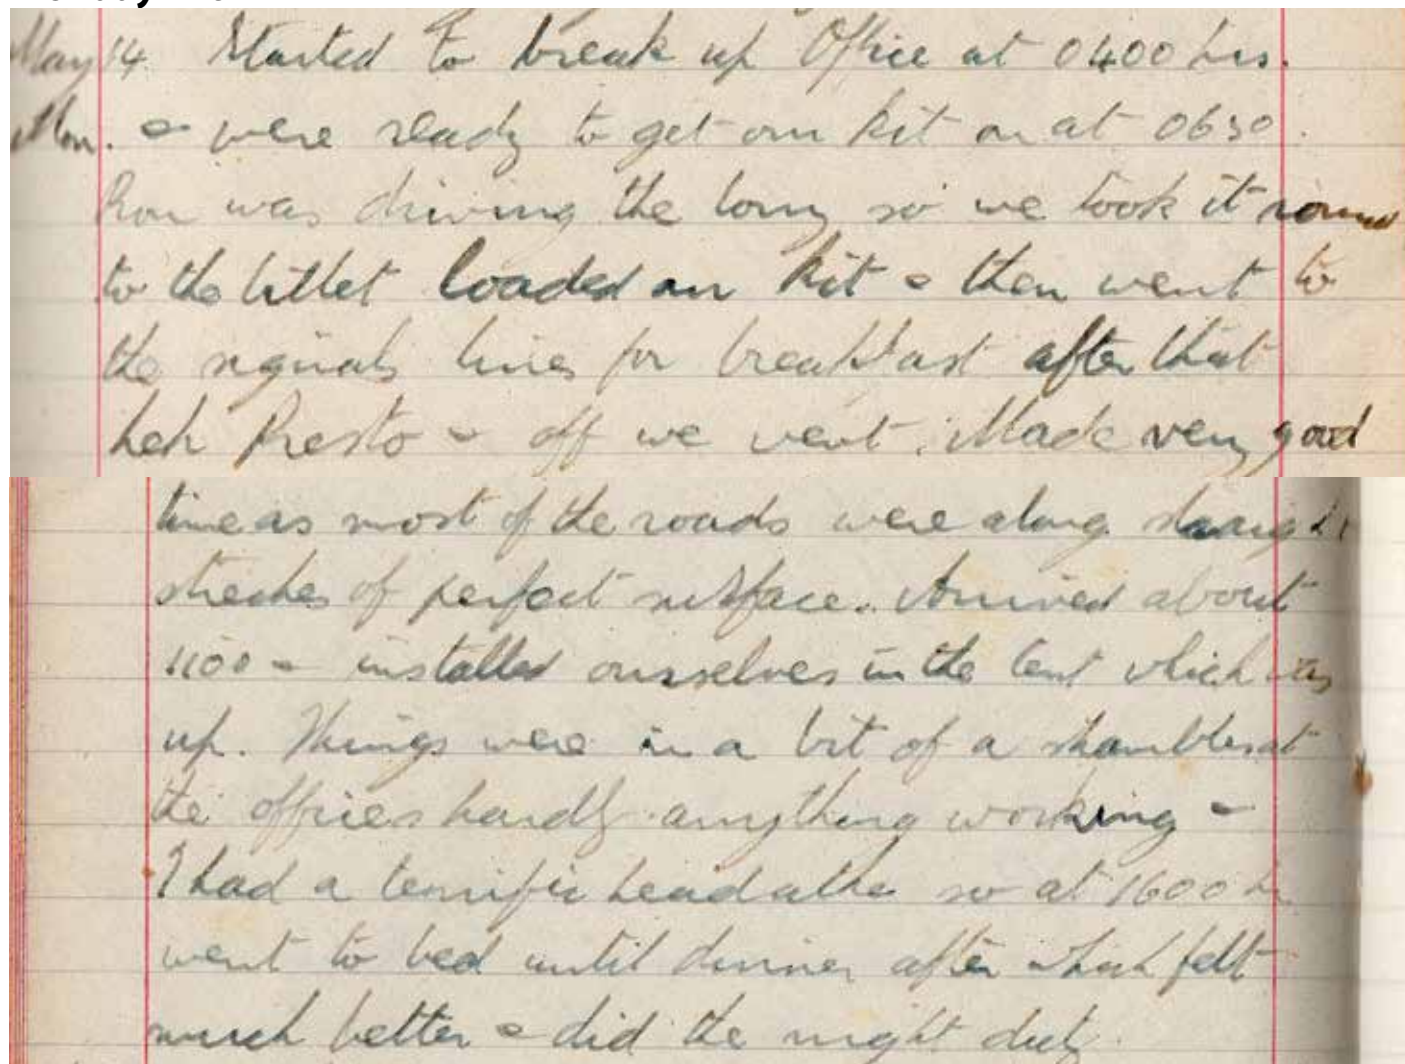 May 14. Started to break up Office at 0400 hrs.
Mon. & were ready to get our kit on at 0630.
Ron was driving the lorry so we took it round
to the billet loaded our kit & then went to
the signals lines for breakfast after that
heh Presto & off we went. Made very good
time as most of the roads were along straight
streches of perfect surface. Arrived about
1100 & installed ourselves in the tent which was
up. Things were in a bit of a shambles at
the offices hardly anything working &
I had a terrific headache so at 1600 hr
went to bed until dinner after which felt
much better & did the night duty.